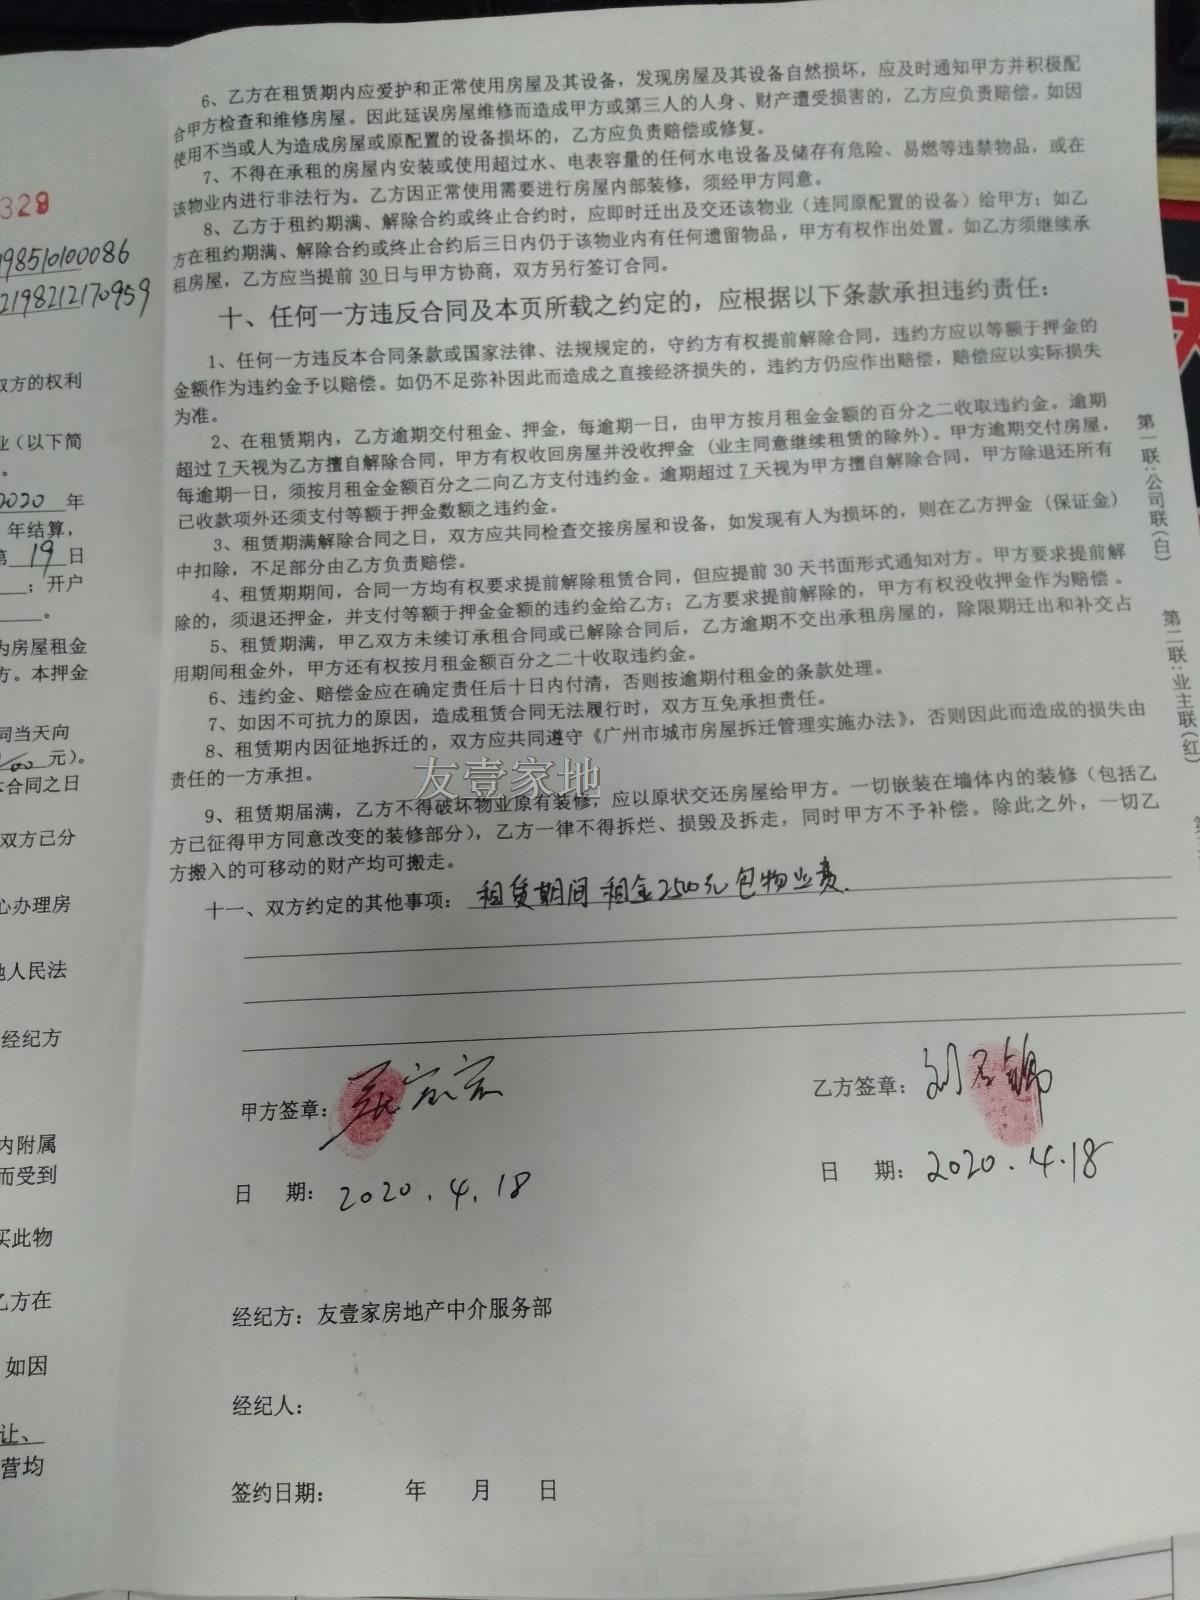 328
19851010 0086
2198212170959
双方的权利
业（以下简
。
2020 年
年结算，
第 19 日
；开户
。
为房屋租金
方。本押金
同当天向
元）。
本合同之日
双方已分
心办理房
地人民法
经纪方
内附属
而受到
买此物
乙方在
如因
让、
营均
6、乙方在租赁期内应爱护和正常使用房屋及其设备，发现房屋及其设备自然损坏，应及时通知甲方并积极配
合甲方检查和维修房屋。因此延误房屋维修而造成甲方或第三人的人身、财产遭受损害的，乙方应负责赔偿。如因
使用不当或人为造成房屋或原配置的设备损坏的，乙方应负责赔偿或修复。
7、不得在承租的房屋内安装或使用超过水、电表容量的任何水电设备及储存有危险、易燃等违禁物品，或在
该物业内进行非法行为。乙方因正常使用需要进行房屋内部装修，须经甲方同意。
8、乙方于租约期满、解除合约或终止合约时，应即时迁出及交还该物业（连同原配置的设备）给甲方；如乙
方在租约期满、解除合约或终止合约后三日内仍于该物业内有任何遗留物品，甲方有权作出处置。如乙方须继续承
租房屋，乙方应当提前 30 日与甲方协商，双方另行签订合同。
十、任何一方违反合同及本页所载之约定的，应根据以下条款承担违约责任：
1、任何一方违反本合同条款或国家法律、法规规定的，守约方有权提前解除合同，违约方应以等额于押金的
金额作为违约金予以赔偿。如仍不足弥补因此而造成之直接经济损失的，违约方仍应作出赔偿，赔偿应以实际损失
为准。
2、在租赁期内，乙方逾期交付租金、押金，每逾期一日，由甲方按月租金金额的百分之二收取违约金。逾期
超过 7 天视为乙方擅自解除合同，甲方有权收回房屋并没收押金（业主同意继续租赁的除外）。甲方逾期交付房屋，
每逾期一日，须按月租金金额百分之二向乙方支付违约金。逾期超过 7 天视为甲方擅自解除合同，甲方除退还所有
已收款项外还须支付等额于押金数额之违约金。
3、租赁期满解除合同之日，双方应共同检查交接房屋和设备，如发现有人为损坏的，则在乙方押金（保证金）
中扣除，不足部分由乙方负责赔偿。
4、租赁期期间，合同一方均有权要求提前解除租赁合同，但应提前 30 天书面形式通知对方。甲方要求提前解
除的，须退还押金，并支付等额于押金金额的违约金给乙方；乙方要求提前解除的，甲方有权没收押金作为赔偿 。
5、租赁期满，甲乙双方未续订承租合同或已解除合同后，乙方逾期不交出承租房屋的，除限期迁出和补交占
用期间租金外，甲方还有权按月租金额百分之二十收取违约金。
6、违约金、赔偿金应在确定责任后十日内付清，否则按逾期付租金的条款处理。
7、如因不可抗力的原因，造成租赁合同无法履行时，双方互免承担责任。
8、租赁期内因征地拆迁的，双方应共同遵守《广州市城市房屋拆迁管理实施办法》，否则因此而造成的损失由
责任的一方承担。
友壹家地
9、租赁期届满，乙方不得破坏物业原有装修，应以原状交还房屋给甲方。一切嵌装在墙体内的装修（包括乙
方已征得甲方同意改变的装修部分），乙方一律不得拆烂、损毁及拆走，同时甲方不予补偿。除此之外，一切乙
方搬入的可移动的财产均可搬走。
十一、双方约定的其他事项：租赁期间 租金2500元 包物业费.
甲方签章：
乙方签章：
日 期：2020.4.18
日 期：2020.4.18
经纪方：友壹家房地产中介服务部
经纪人：
签约日期： 年 月 日
第一联：公司联（白）
第二联：业主联（红）